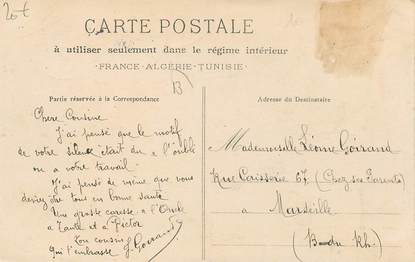 20t
CARTE POSTALE
à utiliser seulement dans le régime intérieur
FRANCE - ALGÉRIE - TUNISIE
B
Partie réservée à la Correspondance
Adresse du Destinataire
Chere Cousine
J'ai pensé que le motif
de votre silence était du a l'oubli
ou a votre travail.
J'ai pensé de même que vous
deviez être tous en bonne santé
Une grosse caresse a l'Oncle
a Tante et a Victor
Ton cousin
qui t'embrasse J. Goirand
Mademoiselle Léonie Goirand
Rue Caisserie 67 (Chez ses Parents)
a Marseille
(B. du Rh.)